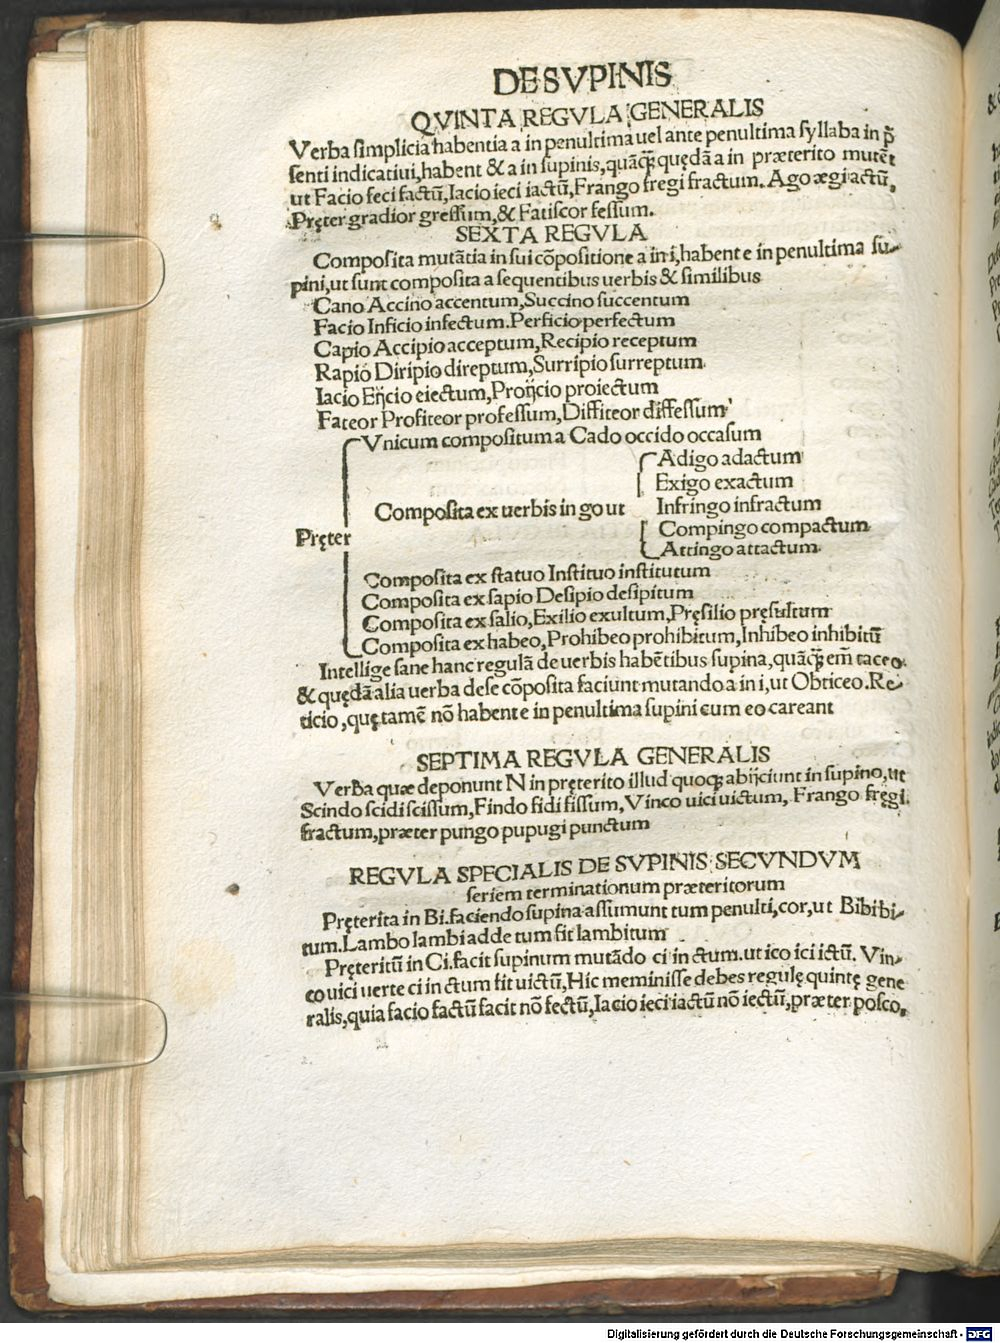 DE SVPINIS
QVINTA REGVLA GENERALIS
Verba simplicia habentia a in penultima uel ante penultima syllaba in p̃
senti indicatiui, habent & a in supinis, quãꝗ̃ quędã a in præterito mutẽt
ut Facio feci factũ, Iacio ieci iactũ, Frango fregi fractum. Ago ægi actũ,
Pręter gradior gressum, & Fatiscor fessum.
SEXTA REGVLA
Composita mutãtia in sui cõpositione a in i, habent e in penultima su-
pini, ut sunt composita a sequentibus uerbis & similibus
Cano Accino accentum, Succino succentum
Facio Inficio infectum. Perficio perfectum
Capio Accipio acceptum, Recipio receptum
Rapio Diripio direptum, Surripio surreptum
Iacio Eijcio eiectum, Proijcio proiectum
Fateor Profiteor professum, Diffiteor diffessum
Vnicum compositum a Cado occido occasum
Adigo adactum
Exigo exactum
Composita ex uerbis in go ut Infringo infractum
Compingo compactum
Pręter
Attingo attactum
Composita ex statuo Instituo institutum
Composita ex sapio Desipio desipitum
Composita ex salio, Exilio exultum, Pręsilio pręsultum
Composita ex habeo, Prohibeo prohibitum, Inhibeo inhibitũ
Intellige sane hanc regulã de uerbis habẽtibus supina, quãꝗ̃ em̃ taceo
& quędã alia uerba de se cõposita faciunt mutando a in i, ut Obticeo. Re-
ticio, quę tamẽ nõ habent e in penultima supini cum eo careant
SEPTIMA REGVLA GENERALIS
Verba quæ deponunt N in pręterito illud quoqꝫ abijciunt in supino, ut
Scindo scidi scissum, Findo fidi fissum, Vinco uici uictum, Frango fręgi
fractum, præter pungo pupugi punctum
REGVLA SPECIALIS DE SVPINIS SECVNDVM
seriem terminationum præteritorum
Pręterita in Bi. faciendo supina assumunt tum penulti, cor, ut Bibi bi-
tum. Lambo lambi adde tum fit lambitum
Pręteritũ in Ci. facit supinum mutãdo ci in ctum. ut ico ici ictũ. Vin-
co uici uerte ci in ctum fit uictũ, Hic meminisse debes regulę quintę gene
ralis, quia facio factũ facit nõ fectũ, Iacio ieci iactũ nõ iectũ, præter posco,
Digitalisierung gefördert durch die Deutsche Forschungsgemeinschaft - DFG